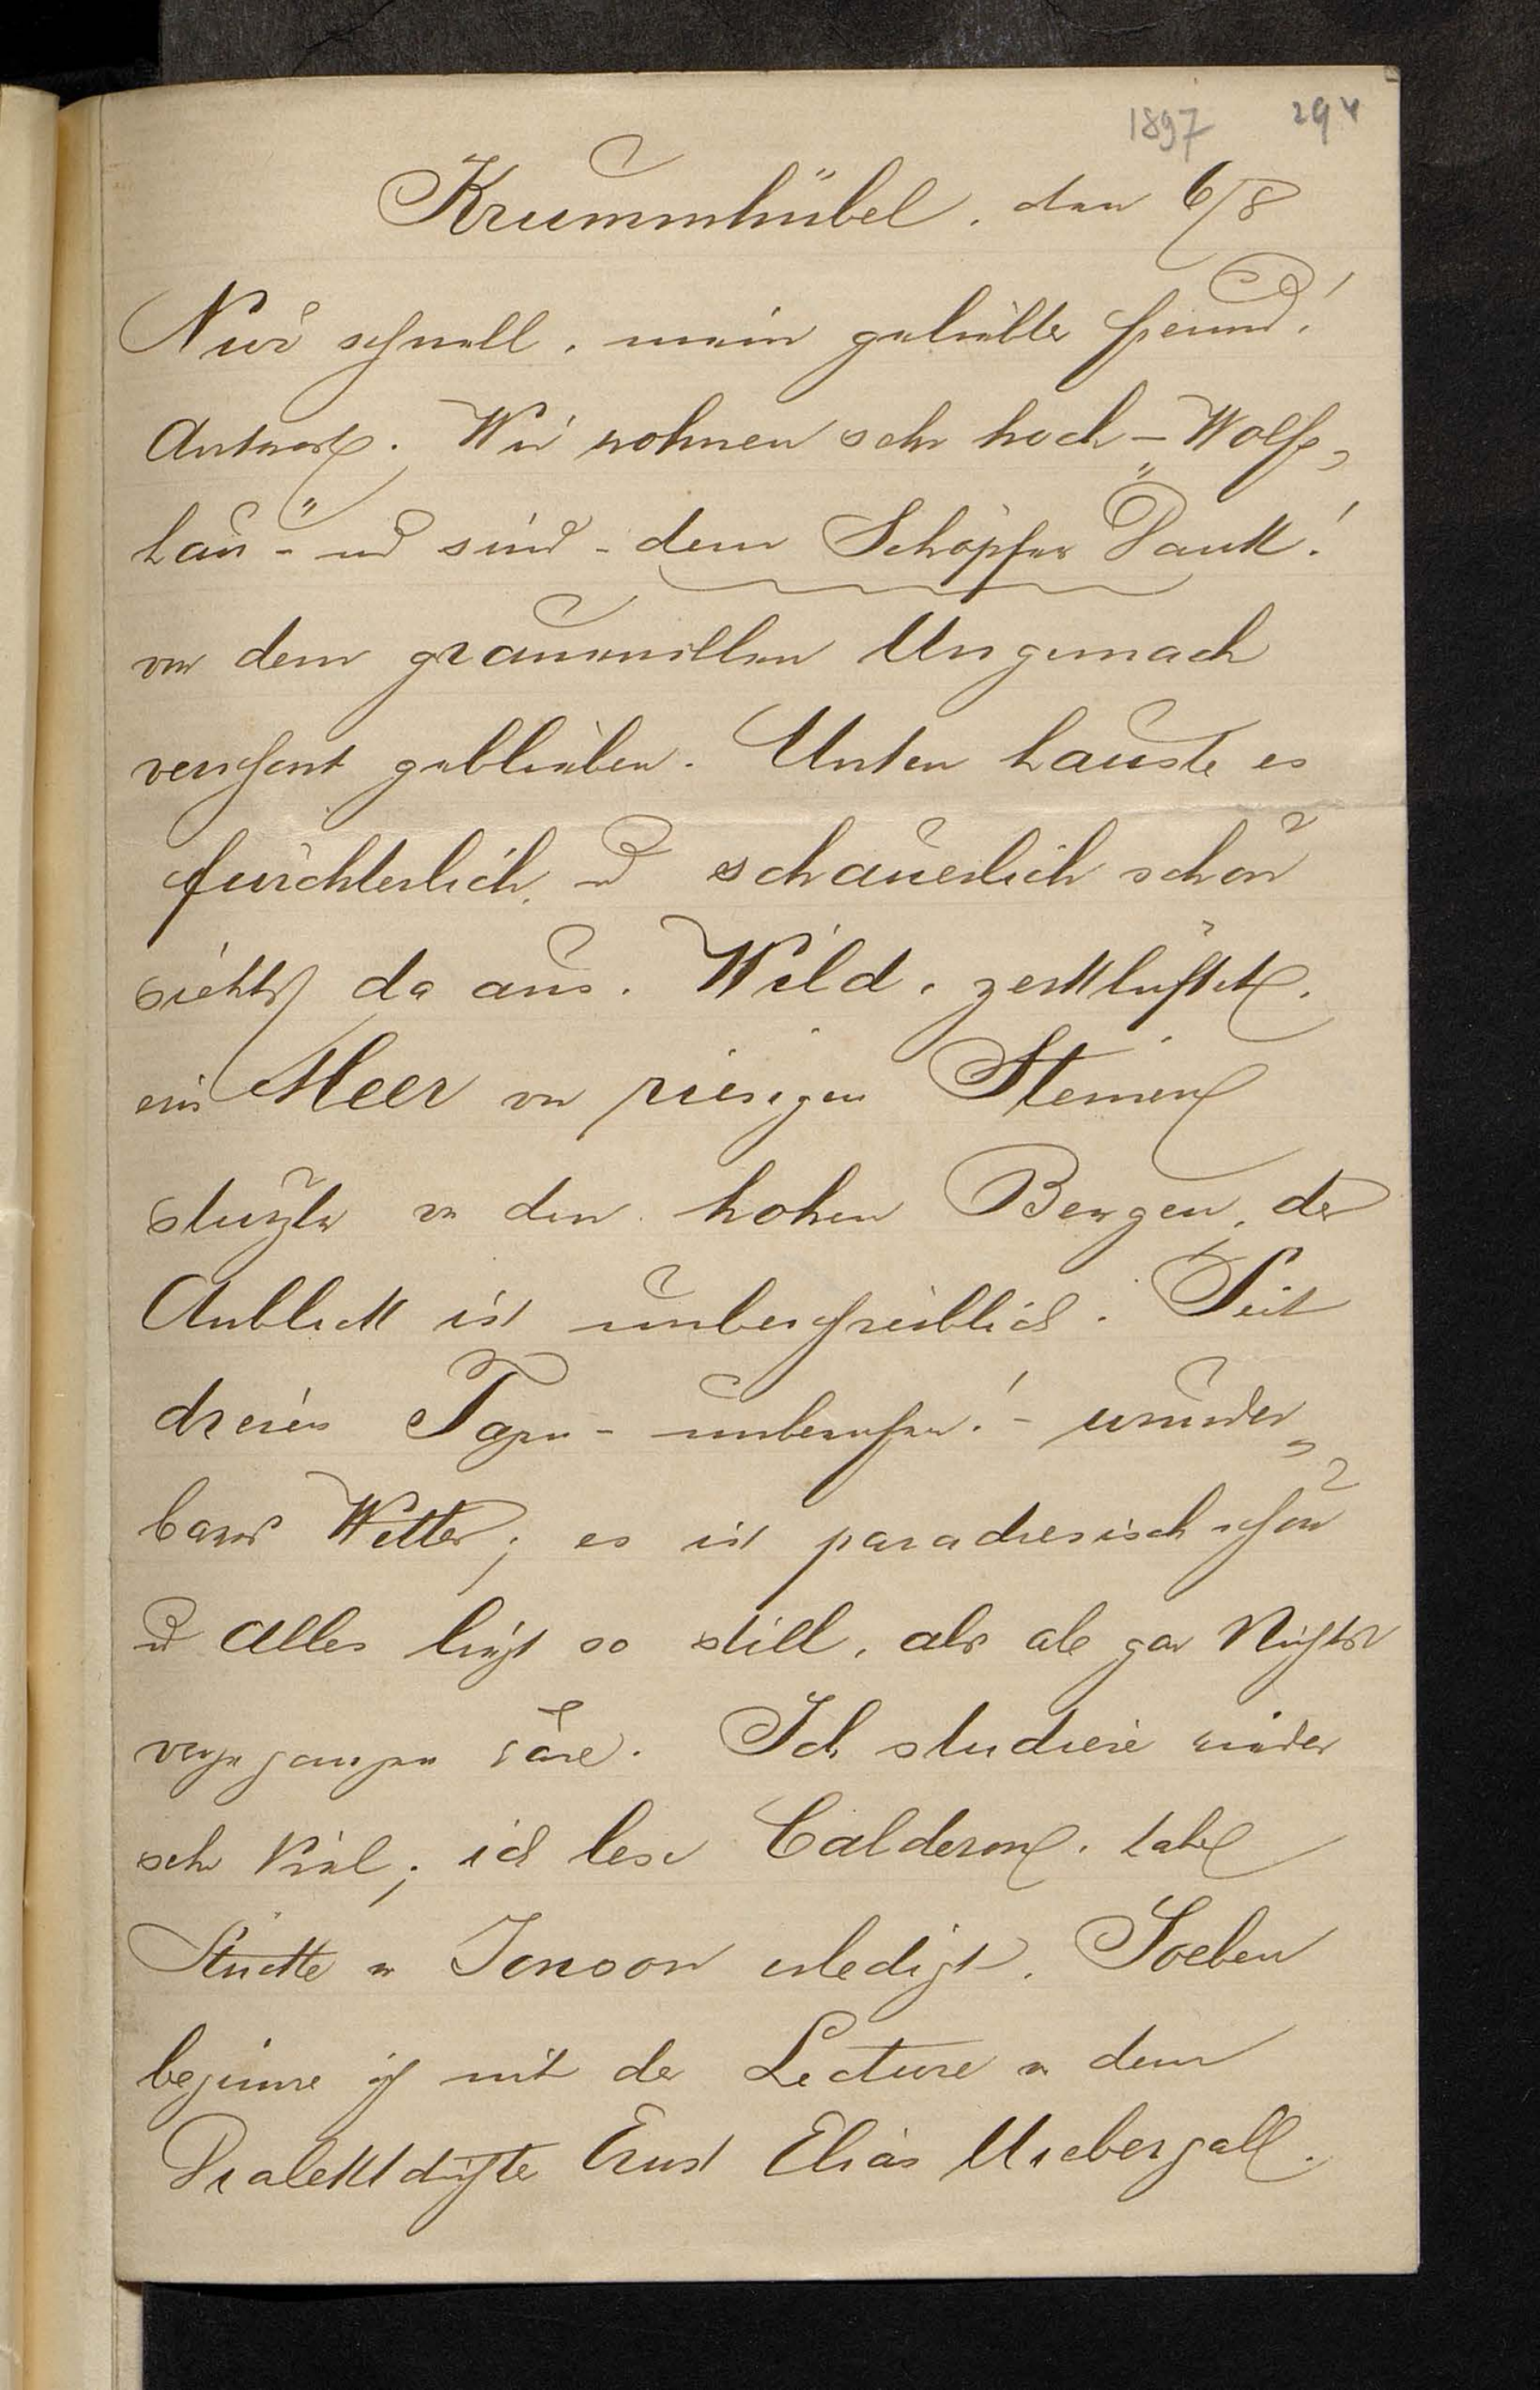 1897 294
Krummhübel, den 6/8
Nur schnell, mein geliebter Freund!
Antwort. Wir wohnen sehr hoch – Wolfs„
hau" – und sind – dem Schöpfer Dank!
von dem grauenvollen Ungemach
verschont geblieben. Unten hauste es
fürchterlich, und schauerlich schön
siehts da aus. Wild, zerklüftet,
ein Meer von riesigen Steinen
stürzte von den hohen Bergen, der
Anblick ist unbeschreiblich. Seit
dreien Tagen – unberufen! – wunder„
bares Wetter; es ist paradiesisch schön
und Alles liegt so still, als ob gar Nichts
vorgegangen wäre. Ich studiere wieder
sehr Viel; ich lese Calderon, habe
Stücke von Jonson erledigt. Soeben
beginne ich mit der Lecture von dem
Dialektdichter Ernst Elias Niebergall.